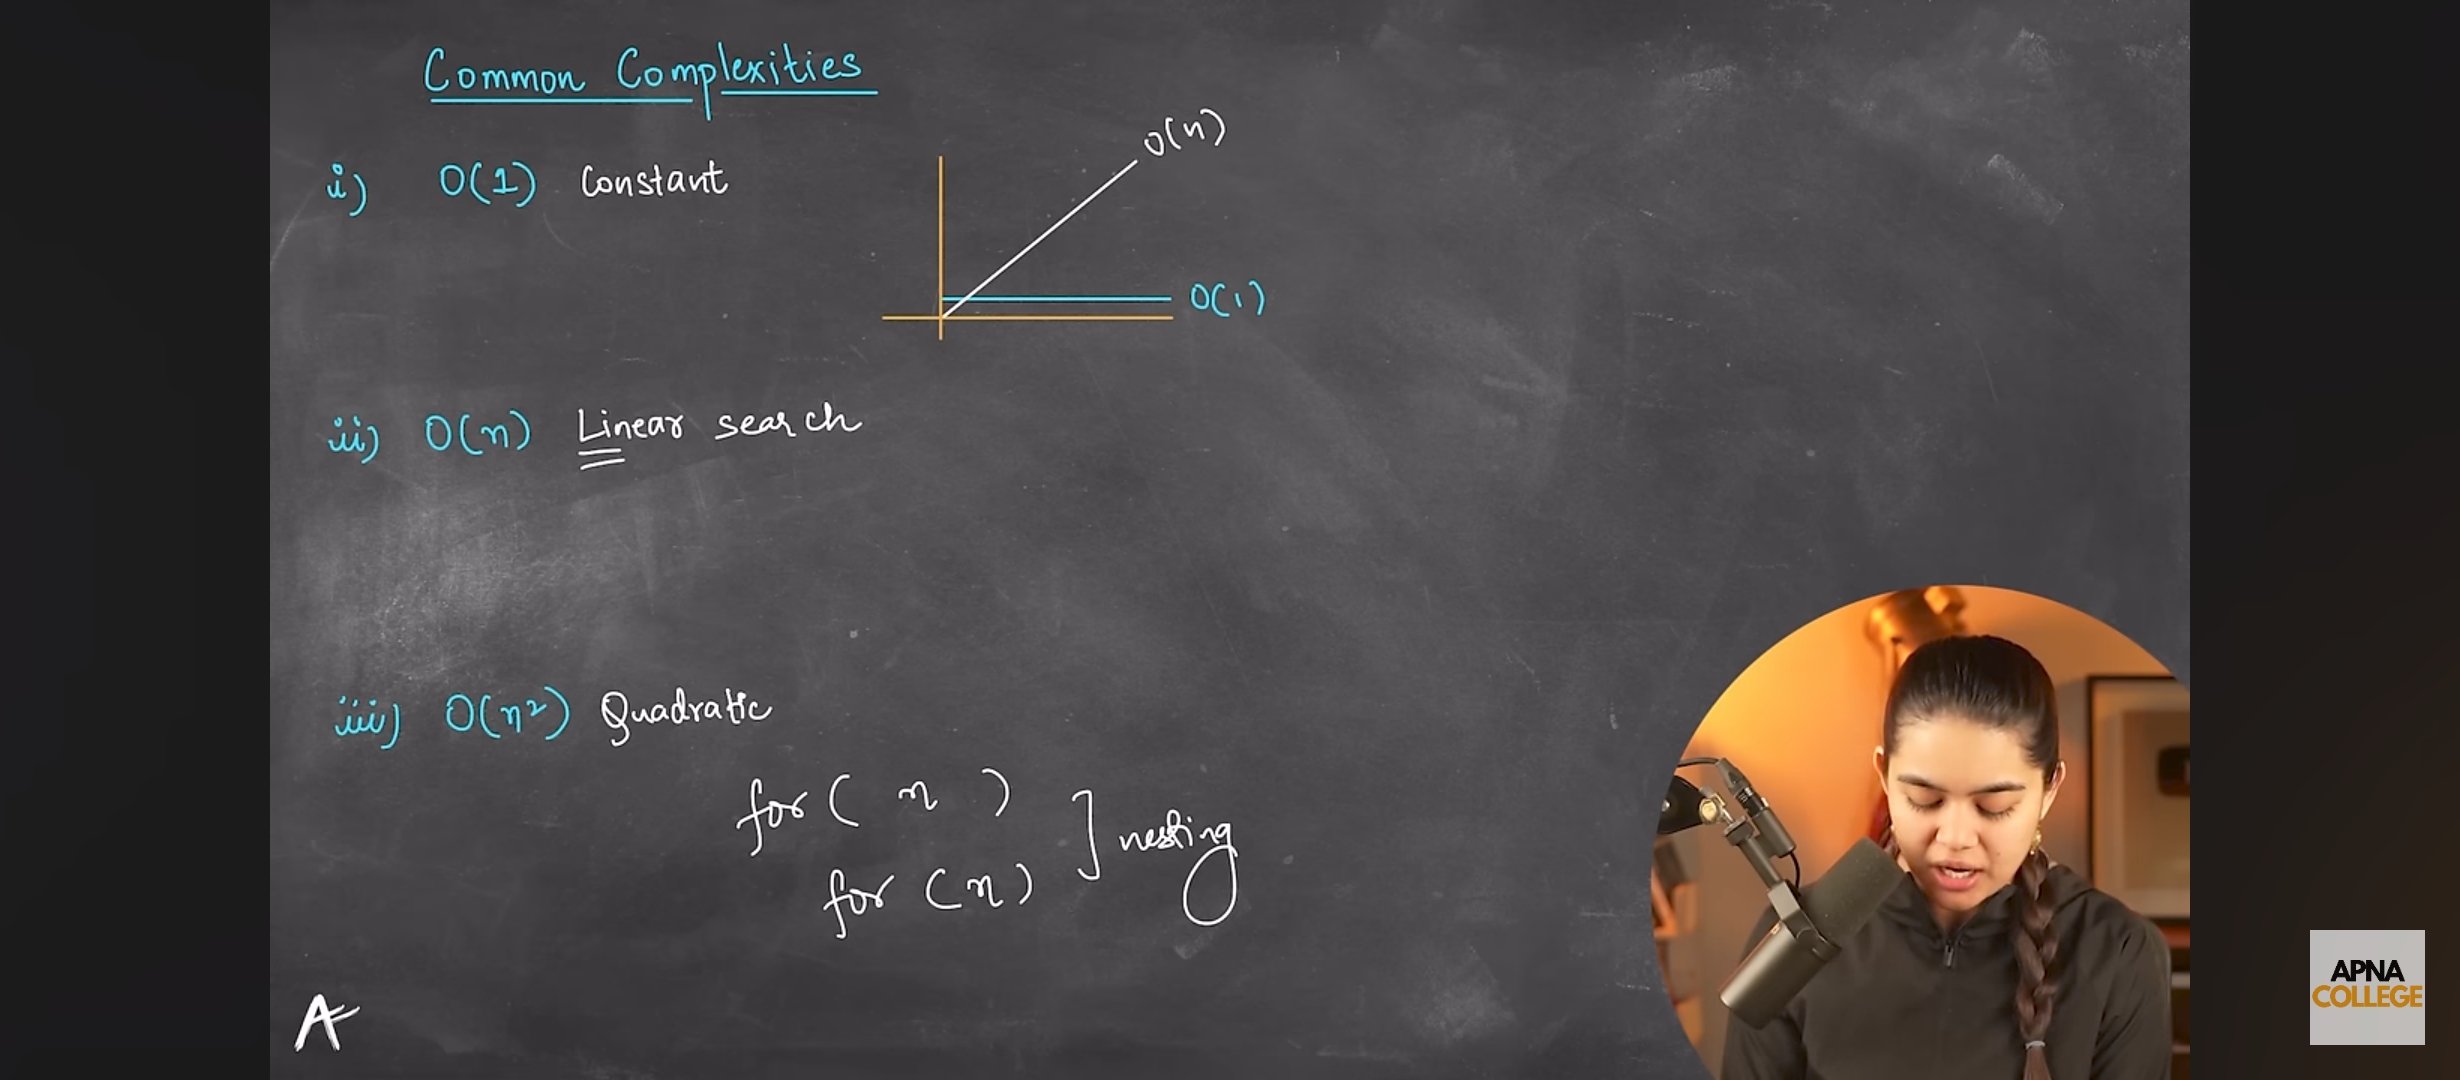 Common Complexities
i) O(1) Constant
O(n)
O(1)
ii) O(n) Linear search
iii) O(n²) Quadratic
for ( n )
for (n)
] nesting
A
APNA
COLLEGE